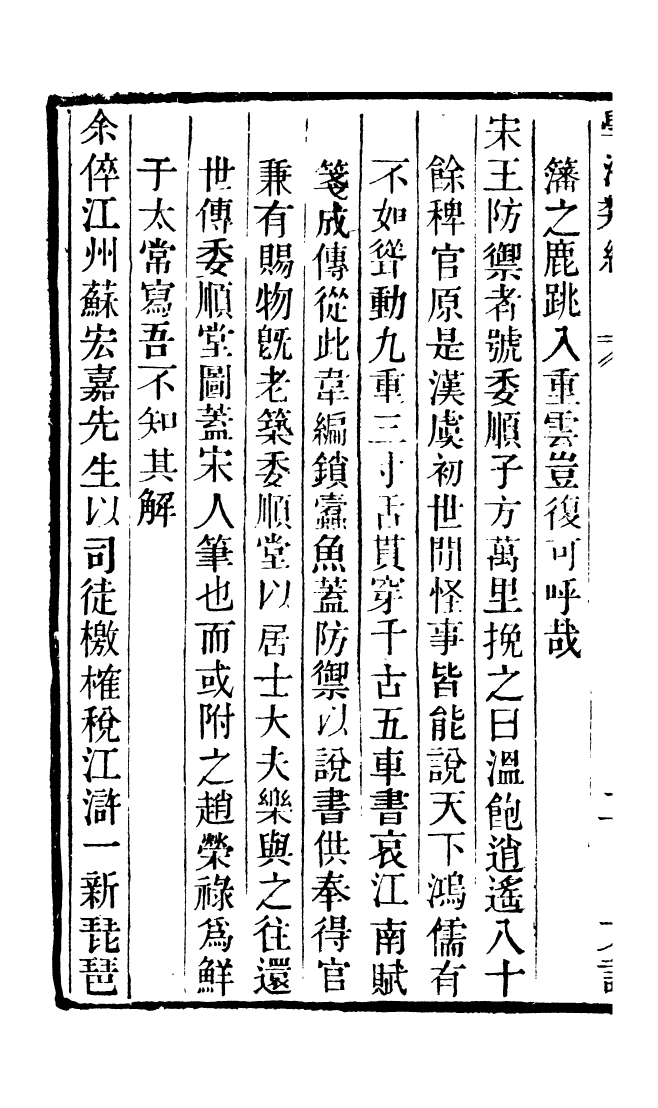 籓之鹿跳入重雲豈復可呼哉
宋王防禦者號委順子方萬里挽之曰溫飽逍遙八十
餘稗官原是漢虞初世間怪事皆能說天下鴻儒有
不如聳動九重三寸舌貫穿千古五車書哀江南賦
箋成傳從此韋編鎖蠹魚蓋防禦以說書供奉得官
兼有賜物旣老築委順堂以居士大夫樂與之往還
世傳委順堂圖蓋宋人筆也而或附之趙榮祿爲鮮
于太常寫吾不知其解
余倅江州蘇宏嘉先生以司徒檄榷稅江滸一新琵琶